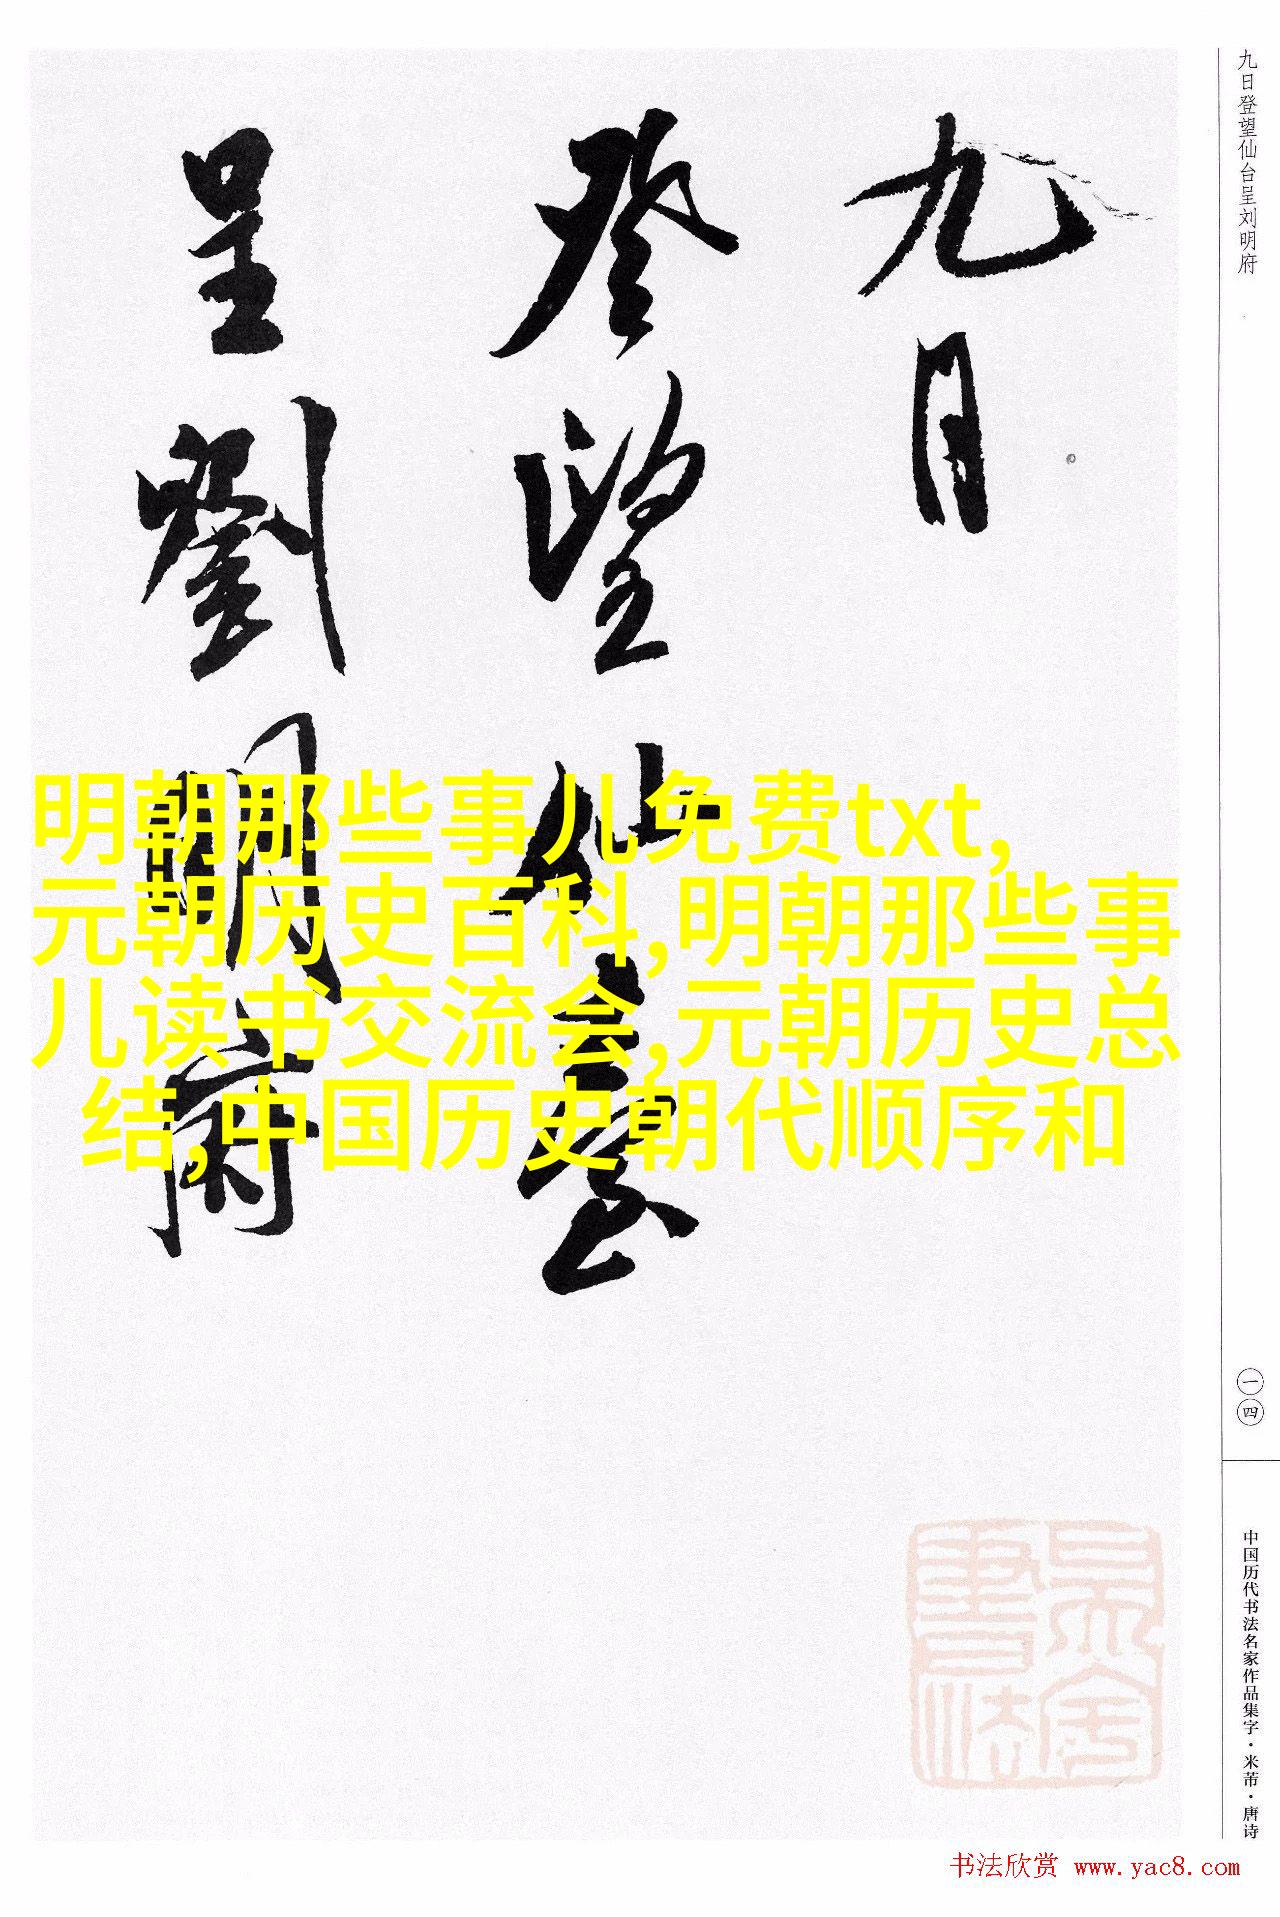 九日登望仙台呈刘明府
九日
登望仙臺
呈劉明府
明朝那些事儿免费txt,
元朝历史百科,明朝那些事
儿读书交流会,元朝历史总
结,中国历史朝代顺序和
一四
中国历代书法名家作品集字·米芾·唐诗
书法欣赏 www.yac8.com